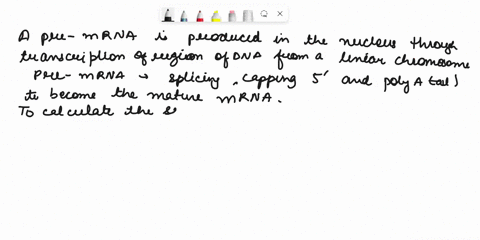 A pre-mRNA is produced in the nucleus through
transcription of region of DNA from a linear chromosome
Pre-mRNA → splicing, capping 5' and poly A tail)
to become the mature mRNA.
To calculate the s